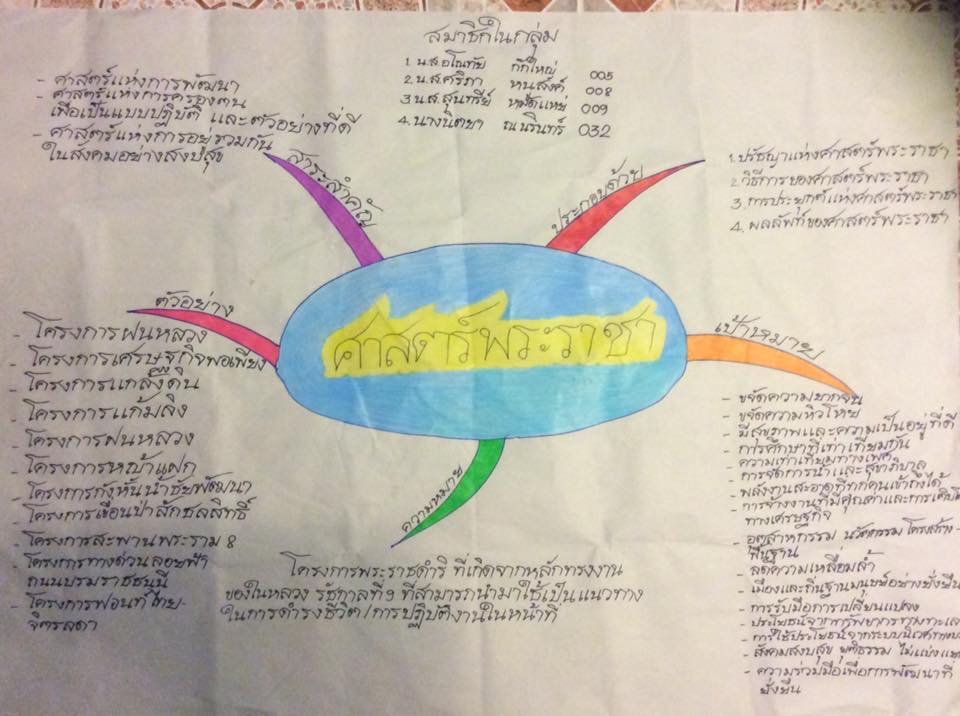 สมาชิกในกลุ่ม
1. น.ส.อโณทัย กักใหญ่ 005
2. น.ส.ศริภา หนูสังค์ 008
3. น.ส.สุนทรีย์ 009
4. นางนิตยา ณ นรินทร์ 032
- ศาสตร์แห่งการพัฒนา
- ศาสตร์แห่งการครองตน
เพื่อเป็นแบบปฏิบัติ และตัวอย่างที่ดี
- ศาสตร์แห่งการอยู่รวมกัน
ในสังคมอย่างสงบสุข
สาระสำคัญ
ประกอบด้วย
1. ปรัชญาแห่งศาสตร์พระราชา
2. วิธีการของศาสตร์พระราชา
3. การประยุกต์แห่งศาสตร์พระราชา
4. ผลลัพท์ของศาสตร์พระราชา
ตัวอย่าง
- โครงการฝนหลวง
- โครงการเศรษฐกิจพอเพียง
- โครงการแกล้งดิน
- โครงการแก้มลิง
- โครงการฝนหลวง
- โครงการหญ้าแฝก
- โครงการกังหันน้ำชัยพัฒนา
- โครงการเขื่อนป่าสักชลสิทธิ์
- โครงการสะพานพระราม 8
- โครงการทางด่วนลอยฟ้า
ถนนบรมราชชนนี
- โครงการฟอนท์ไทย-
จิตรลดา
ศาสตร์พระราชา
เป้าหมาย
- ขจัดความยากจน
- ขจัดความหิวโหย
- มีสุขภาพและความเป็นอยู่ที่ดี
- การศึกษาที่เท่าเทียมกัน
- ความเท่าเทียมทางเพศ
- การจัดการน้ำและสุขาภิบาล
- พลังงานสะอาดที่ทุกคนเข้าถึงได้
- การจ้างงานที่มีคุณค่าและการเติบโต
ทางเศรษฐกิจ
- อุตสาหกรรม นวัตกรรม โครงสร้าง-
พื้นฐาน
- ลดความเหลื่อมล้ำ
- เมืองและถิ่นฐานมนุษย์อย่างยั่งยืน
- การรับมือการเปลี่ยนแปลง
- ประโยชน์จากทรัพยากรทางทะเล
- การใช้ประโยชน์จากระบบนิเวศทางบก
- สังคมสงบสุข ยุติธรรม ไม่แบ่งแยก
- ความร่วมมือเพื่อการพัฒนาที่
ยั่งยืน
ความหมาย
โครงการพระราชดำริ ที่เกิดจากหลักทรงงาน
ของในหลวง รัชกาลที่ 9 ที่สามารถนำมาใช้เป็นแนวทาง
ในการดำรงชีวิต/การปฏิบัติงานในหน้าที่